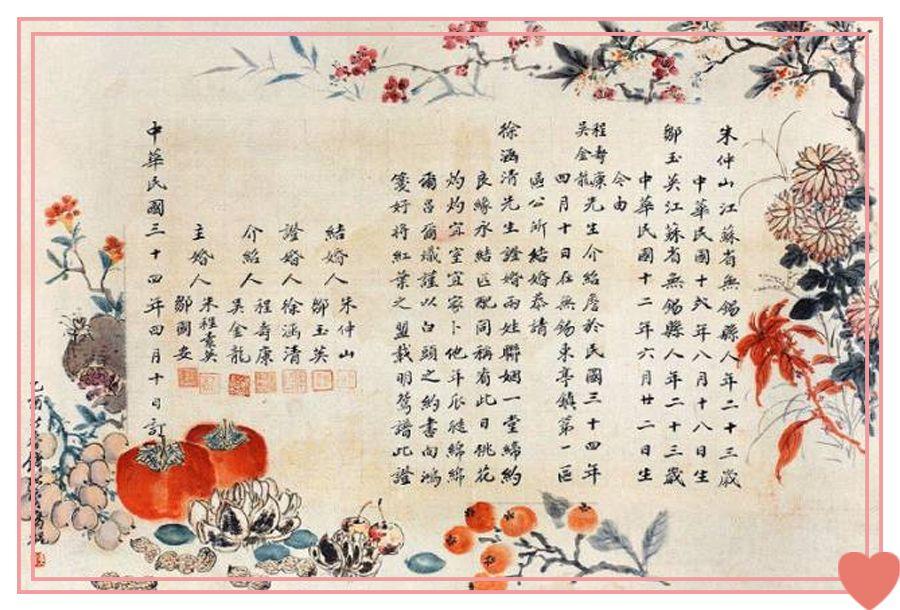 朱仲山江蘇省無錫縣人年二十三歲
中華民國十弍年八月十八日生
鄒玉英江蘇省無錫縣人年二十三歲
中華民國十二年六月廿二日生
今由
程壽康
吳金龍
先生介紹詹於民國三十四年
四月十日在無錫東亭鎮第一區
區公所結婚恭請
徐涵清先生證婚兩姓聯姻一堂締約
良緣永結匹配同稱看此日桃花
灼灼宜室宜家卜他年瓜瓞綿綿
爾昌爾熾謹以白頭之約書向鴻
箋好將紅葉之盟載明鴛譜此證
結婚人
朱仲山
鄒玉英
證婚人
徐涵清
介紹人
程壽康
吳金龍
主婚人
朱程素英
鄒國安
中華民國三十四年四月十日訂